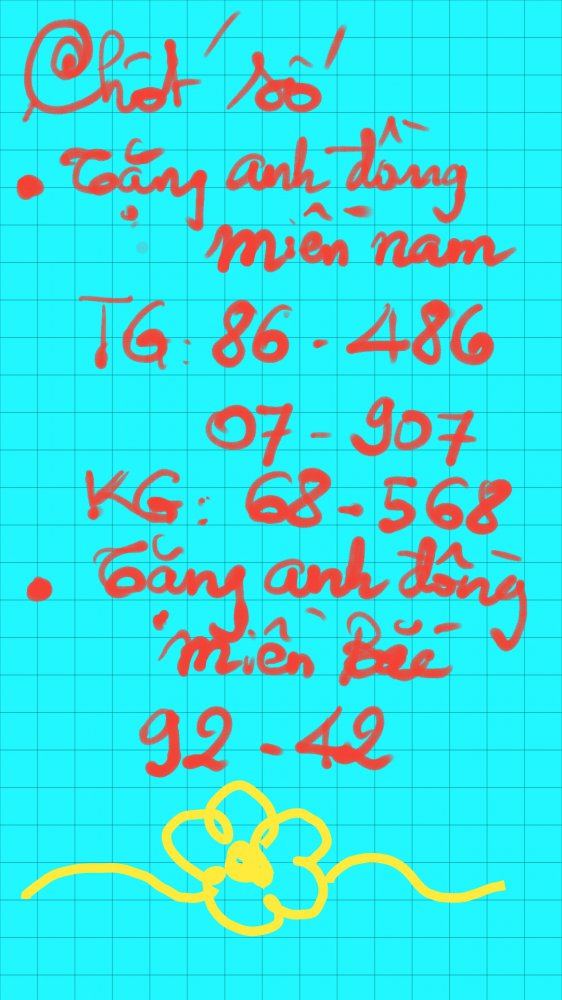 Chốt số
• Tặng anh đồng
miền nam
TG: 86 - 486
07 - 907
KG: 68 - 568
• Tặng anh đồng
miền Bắc
92 - 42